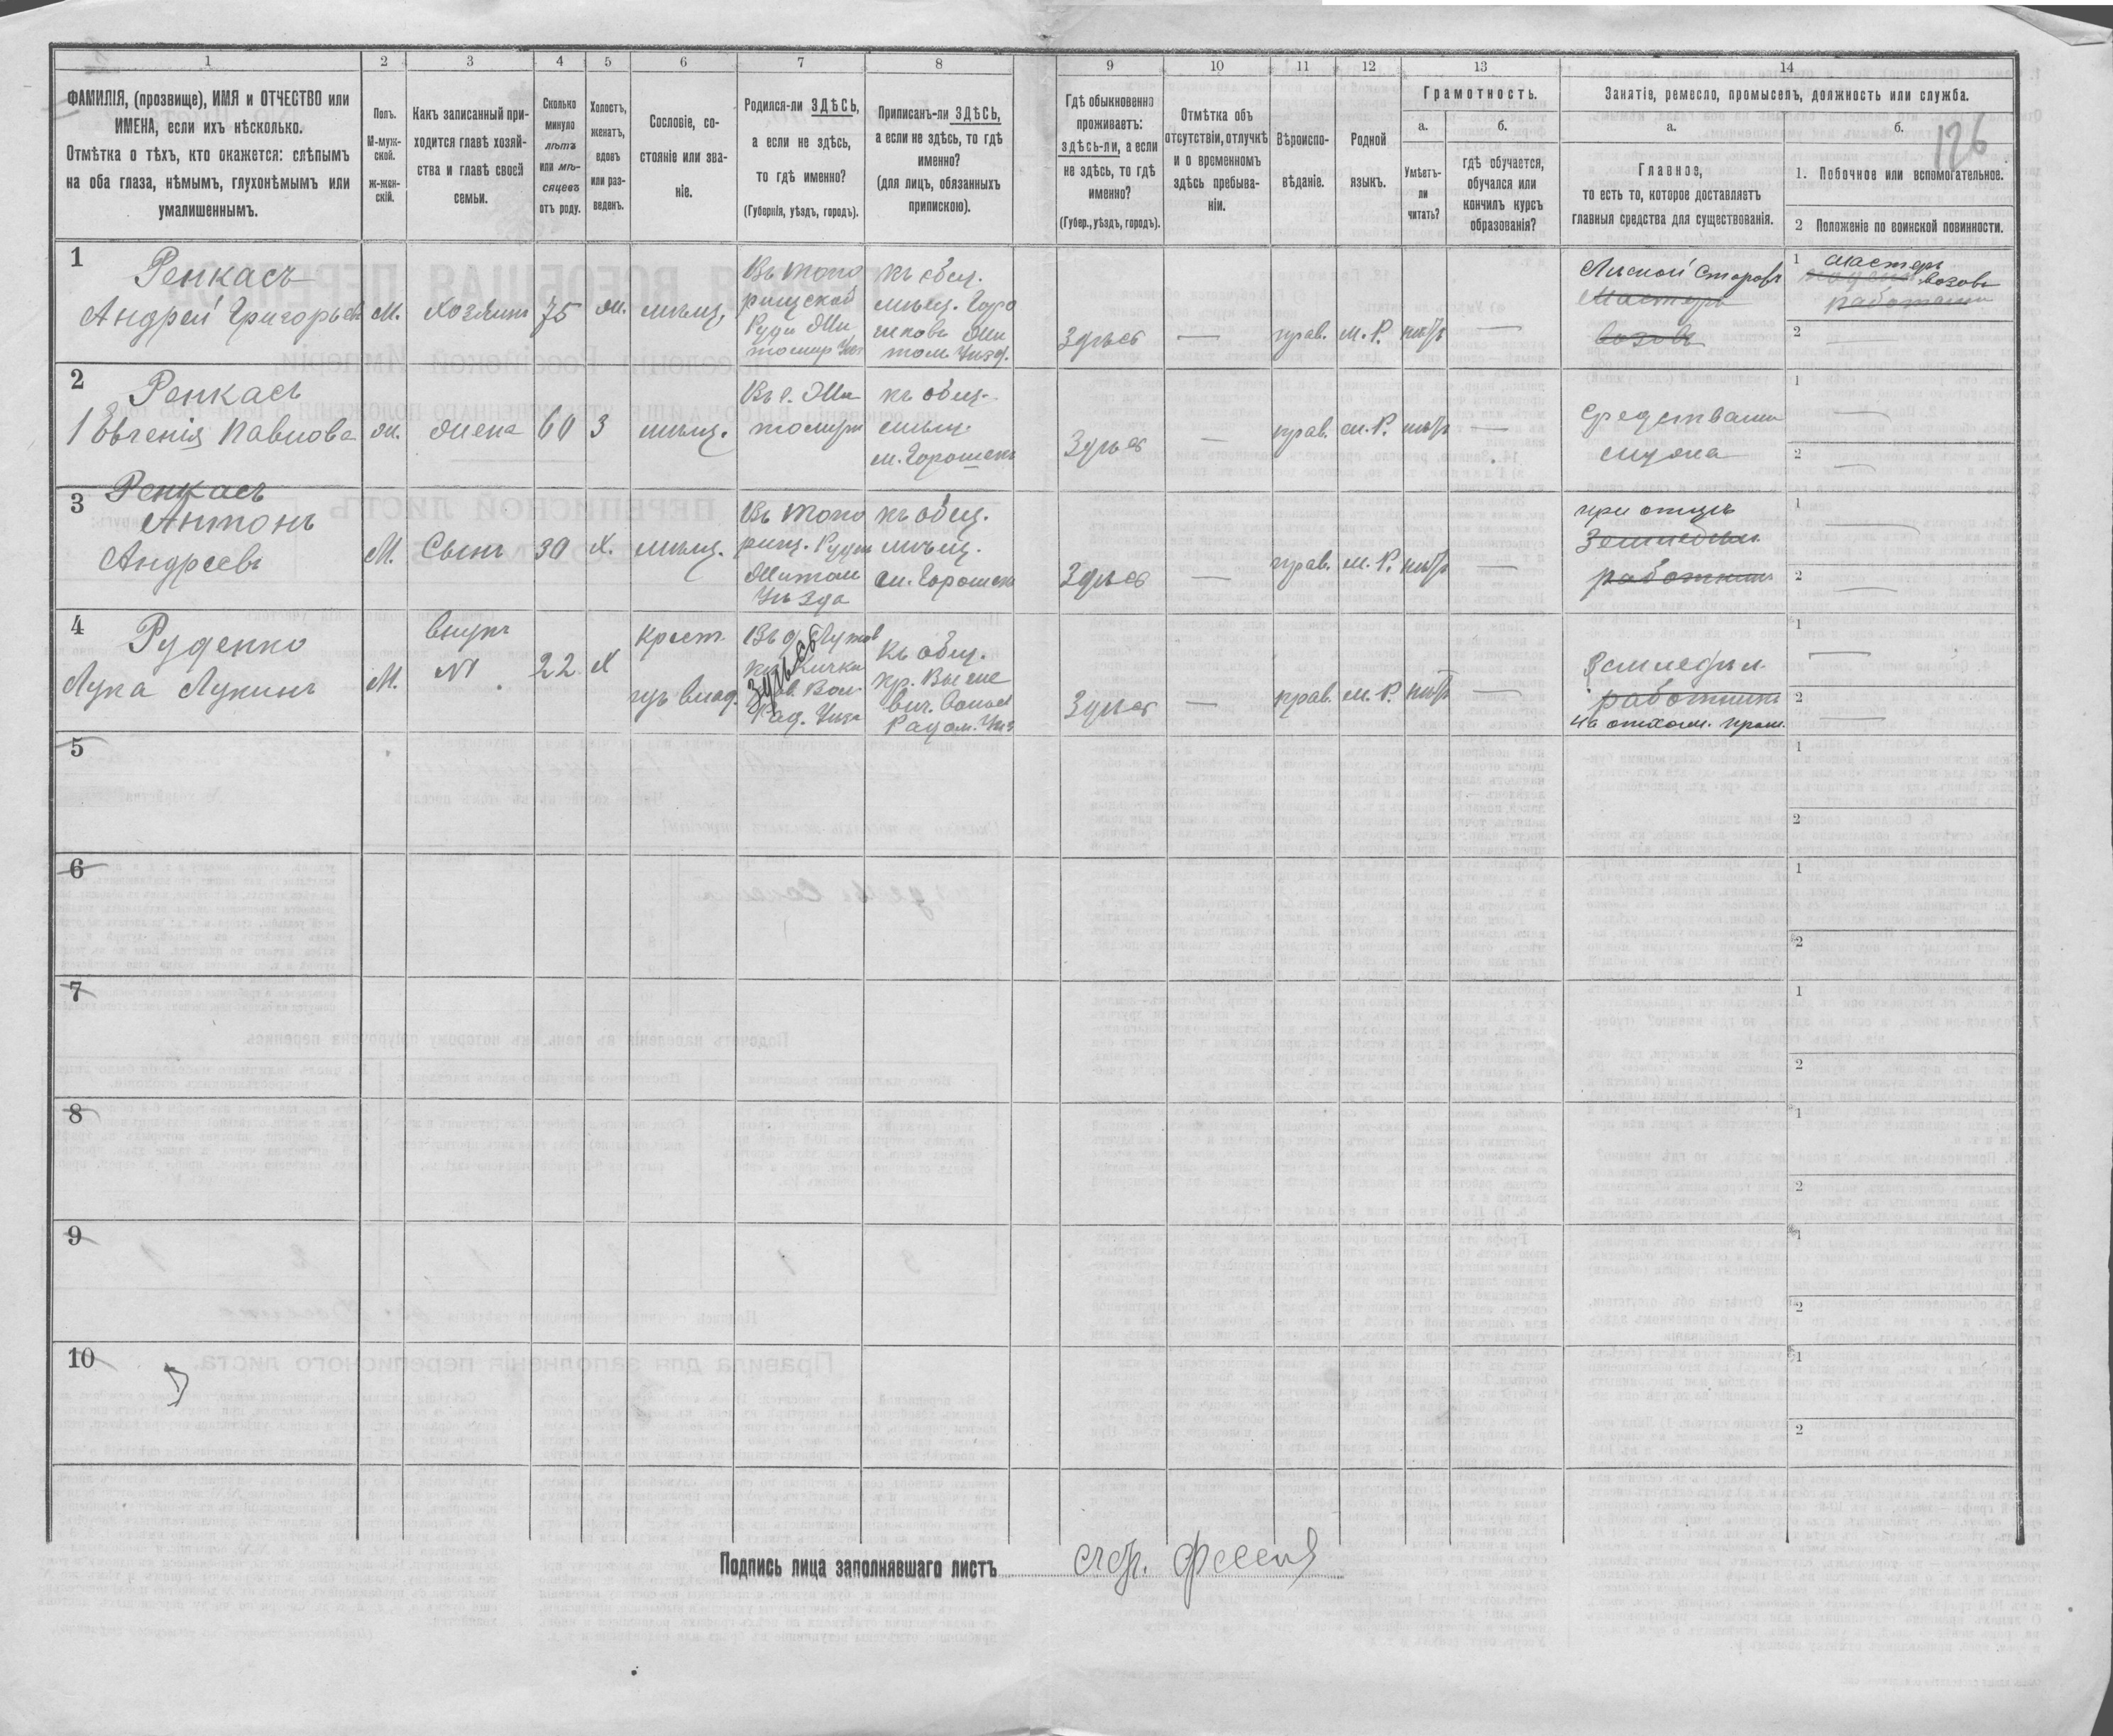 1 2 3 4 5 6 7 8 9 10 11 12 13 14
ФАМИЛІЯ, (прозвище), ИМЯ и ОТЧЕСТВО или
ИМЕНА, если ихъ нѣсколько.
Отмѣтка о тѣхъ, кто окажется: слѣпымъ
на оба глаза, нѣмымъ, глухонѣмымъ или
умалишеннымъ.
Полъ.
М-муж-
ской.
ж-жен-
скій.
Какъ записанный при-
ходится главѣ хозяй-
ства и главѣ своей
семьи.
Сколько
минуло
лѣтъ
или мѣ-
сяцевъ
отъ роду.
Холостъ,
женатъ,
вдовъ
или раз-
веденъ.
Сословіе, со-
стояніе или зва-
ніе.
Родился-ли ЗДѢСЬ,
а если не здѣсь,
то гдѣ именно?
(Губернія, уѣздъ, городъ).
Приписанъ-ли ЗДѢСЬ,
а если не здѣсь, то гдѣ
именно?
(для лицъ, обязанныхъ
припискою).
Гдѣ обыкновенно
проживаетъ:
здѣсь-ли, а если
не здѣсь, то гдѣ
именно?
(Губер., уѣздъ, городъ).
Отмѣтка объ
отсутствіи, отлучкѣ
и о временномъ
здѣсь пребыва-
ніи.
Вѣроиспо-
вѣданіе.
Родной
языкъ.
Грамотность.
а.
Умѣетъ-
ли
читать?
б.
гдѣ обучается,
обучался или
кончилъ курсъ
образованія?
Занятіе, ремесло, промыселъ, должность или служба.
а.
Главное,
то есть то, которое доставляетъ
главныя средства для существованія.
б.
126
1. Побочное или вспомогательное.
2 Положеніе по воинской повинности.
1
Ренкасъ
Андрей Григорьев
М.
Хозяинъ
75
ж.
мѣщ.
Въ Топо
рищской
Руди Жи
томир Уѣз
къ общ.
мѣщ. Горо
шковъ Жи
том. Уѣзд.
Здѣсь
—
прав.
м. Р.
нѣтъ
—
Лѣсной Сторожъ
Мастеръ
возовъ
1 мастеръ
возовъ
работникъ
2 —
2
Ренкасъ
1 Евгенія Павлова
ж.
жена
60
З
мѣщ.
Въ г. Жи
томирѣ
къ общ.
мѣщ.
м. Горошекъ
Здѣсь
—
прав.
м. Р.
нѣтъ
—
Средствами
мужа
1 —
2 —
3
Ренкасъ
Антонъ
Андреевъ
М.
Сынъ
30
Х.
мѣщ.
Въ Топо
рищ. Рудѣ
Житом
Уѣзда
къ общ.
мѣщ.
м. Горошекъ
Здѣсь
—
прав.
м. Р.
нѣтъ
—
при отцѣ
Земледѣл.
работникъ
1 —
2 —
4
Руденко
Лука Лукинъ
М.
внукъ
№1
22
Х
крест.
изъ влад.
Здѣсь
Рад. Уѣз
къ общ.
кр. Выше
вич. Волост
Радом. Уѣз
Здѣсь
—
прав.
м. Р.
нѣтъ
—
Земледѣл.
работникъ
на отхож. пром.
1 —
2 —
5
1
2
6
1
2
7
1
2
8
1
2
9
1
2
10
1
2
Подпись лица заполнявшаго листъ